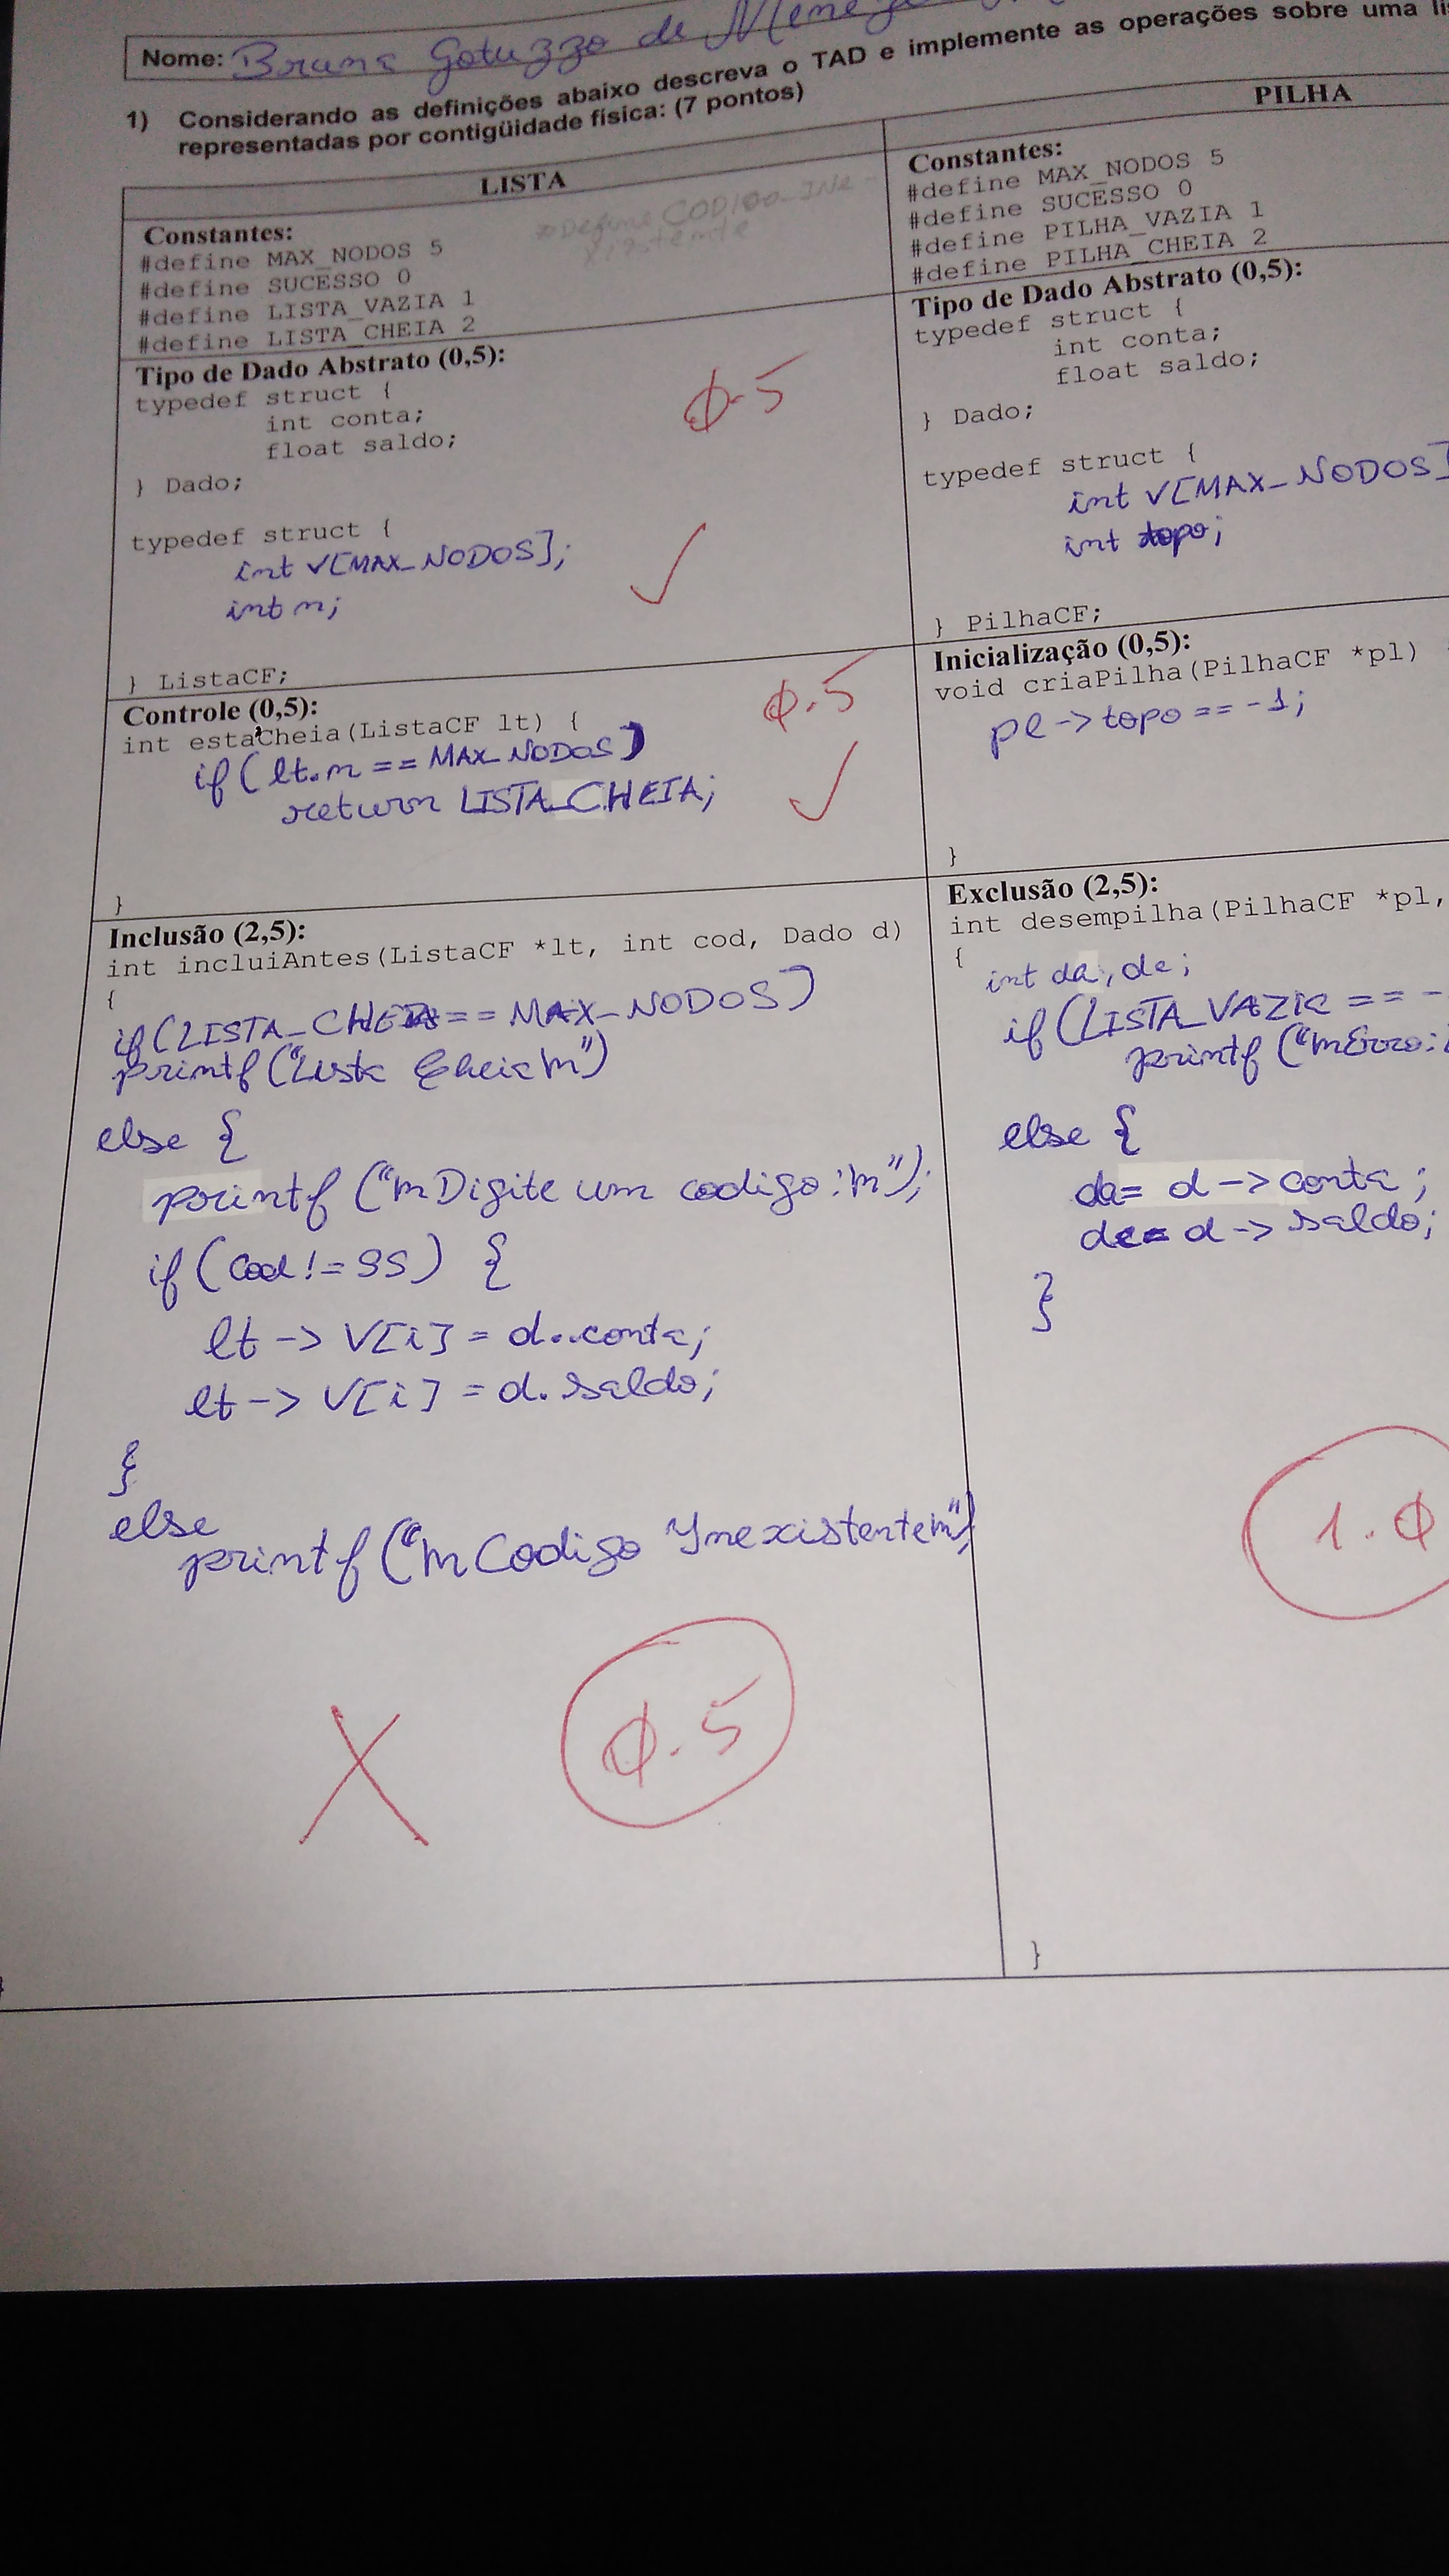 Nome: Bruna Gotuzzo de
1) Considerando as definições abaixo descreva o TAD e implemente as operações sobre uma
representadas por contigüidade física: (7 pontos)
LISTA
Constantes:
#define MAX_NODOS 5
#define SUCESSO 0
#define LISTA_VAZIA 1
#define LISTA_CHEIA 2
Tipo de Dado Abstrato (0,5):
typedef struct {
int conta;
float saldo;
} Dado;
Ø.5
typedef struct {
int v[MAX_NODOS];
int n;
} ListaCF;
Controle (0,5):
int estaCheia(ListaCF lt) {
if (lt.n == MAX_NODOS)
return LISTA_CHEIA;
}
Ø.5
Inclusão (2,5):
int incluiAntes(ListaCF *lt, int cod, Dado d)
{
if (LISTA_CHEIA == MAX_NODOS)
printf("Lista Cheia\n")
else {
printf("\nDigite um codigo:\n");
if (cod != 99) {
lt -> v[i] = d.conta;
lt -> v[i] = d.saldo;
}
else
printf("\nCodigo Inexistente\n")
X Ø.5
PILHA
Constantes:
#define MAX_NODOS 5
#define SUCESSO 0
#define PILHA_VAZIA 1
#define PILHA_CHEIA 2
Tipo de Dado Abstrato (0,5):
typedef struct {
int conta;
float saldo;
} Dado;
typedef struct {
int v[MAX_NODOS]
int topo;
} PilhaCF;
Inicialização (0,5):
void criaPilha(PilhaCF *pl)
pl -> topo == -1;
}
Exclusão (2,5):
int desempilha(PilhaCF *pl,
{
int da, de;
if (LISTA_VAZIA == -
printf("\nErro:
else {
da = d -> conta;
de = d -> saldo;
}
1.Ø
}